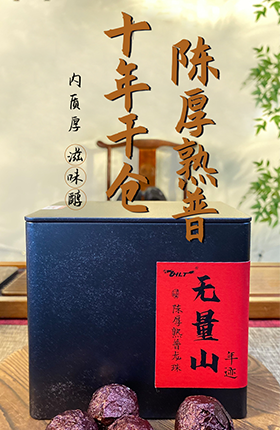 陈厚熟普
十年干仓
内质厚 滋味醇
DILT
无量山
年迹
陈厚熟普龙珠